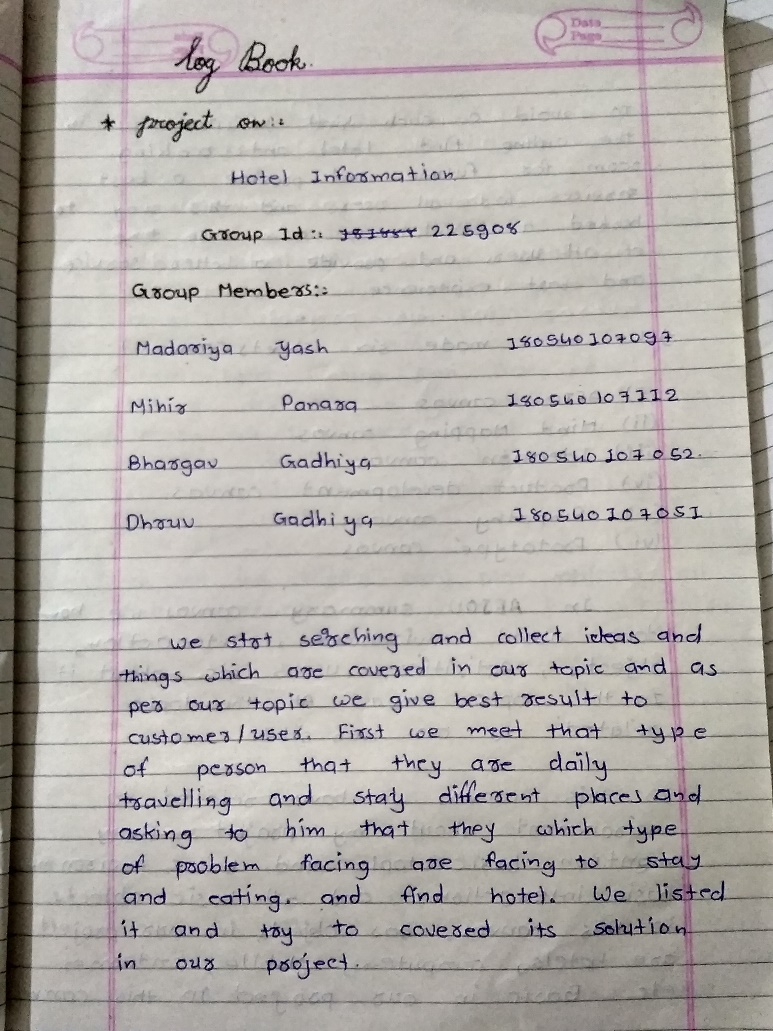 Date
Page
log Book.
* project on::
Hotel Information
Group Id:: 225908
Group Members::
Madariya Yash 180540107097
Mihir Panara 180540107112
Bhargav Gadhiya 180540107052.
Dhruv Gadhiya 180540107051
we strt serching and collect ideas and
things which are covered in our topic and as
per our topic we give best result to
customer/user. First we meet that type
of person that they are daily
travelling and stay different places and
asking to him that they which type
of problem facing are facing to stay
and eating. and find hotel. We listed
it and try to covered its solution
in our project.